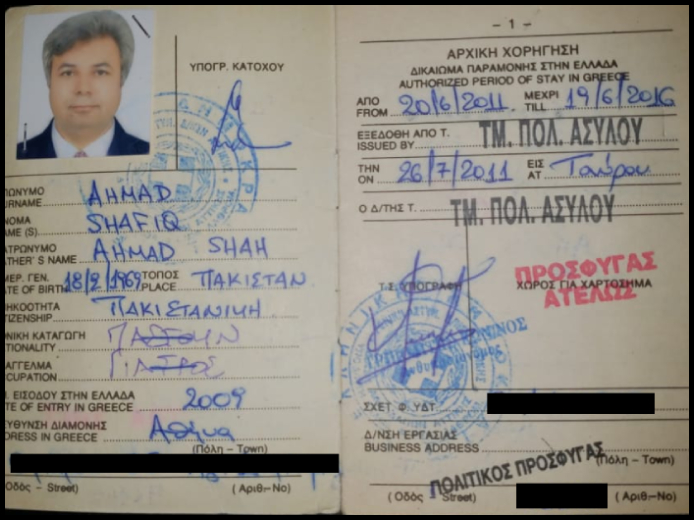 ΥΠΟΓΡ. ΚΑΤΟΧΟΥ
ΩΝΥΜΟ
URNAME
AHMAD
ΝΟΜΑ
ME (S)
SHAFIQ
ΑΤΡΩΝΥΜΟ
THER'S NAME
AHMAD SHAH
ΜΕΡ. ΓΕΝ.
TE OF BIRTH
18/2/1969
ΤΟΠΟΣ
PLACE
ΠΑΚΙΣΤΑΝ
ΗΚΟΟΤΗΤΑ
TIZENSHIP
ΠΑΚΙΣΤΑΝΙΚΗ
ΝΙΚΗ ΚΑΤΑΓΩΓΗ
TIONALITY
ΠΑΣΤΟΥΝ
ΑΓΓΕΛΜΑ
CUPATION
ΓΙΑΤΡΟΣ
. ΕΙΣΟΔΟΥ ΣΤΗΝ ΕΛΛΑΔΑ
TE OF ENTRY IN GREECE
2009
ΕΥΘΥΝΣΗ ΔΙΑΜΟΝΗΣ
DRESS IN GREECE
Αθήνα
(Πόλη – Town)
(Οδός – Street)
(Αριθ.–No)
– 1 –
ΑΡΧΙΚΗ ΧΟΡΗΓΗΣΗ
ΔΙΚΑΙΩΜΑ ΠΑΡΑΜΟΝΗΣ ΣΤΗΝ ΕΛΛΑΔΑ
AUTHORIZED PERIOD OF STAY IN GREECE
ΑΠΟ
FROM
20/6/2011
ΜΕΧΡΙ
TILL
19/6/2016
ΕΞΕΔΟΘΗ ΑΠΟ Τ.
ISSUED BY
ΤΜ. ΠΟΛ. ΑΣΥΛΟΥ
ΤΗΝ
ON
26/7/2011
ΕΙΣ
AT
Ταύρου
Ο Δ/ΤΗΣ Τ.
ΤΜ. ΠΟΛ. ΑΣΥΛΟΥ
Τ.Σ. ΥΠΟΓΡΑΦΗ
ΧΩΡΟΣ ΓΙΑ ΧΑΡΤΟΣΗΜΑ
ΠΡΟΣΦΥΓΑΣ
ΑΤΕΛΩΣ
ΣΧΕΤ. Φ. ΥΔΤ.
Δ/ΝΣΗ ΕΡΓΑΣΙΑΣ
BUSINESS ADDRESS
(Πόλη – Town)
ΠΟΛΙΤΙΚΟΣ ΠΡΟΣΦΥΓΑΣ
(Οδός – Street)
(Αριθ.–No)